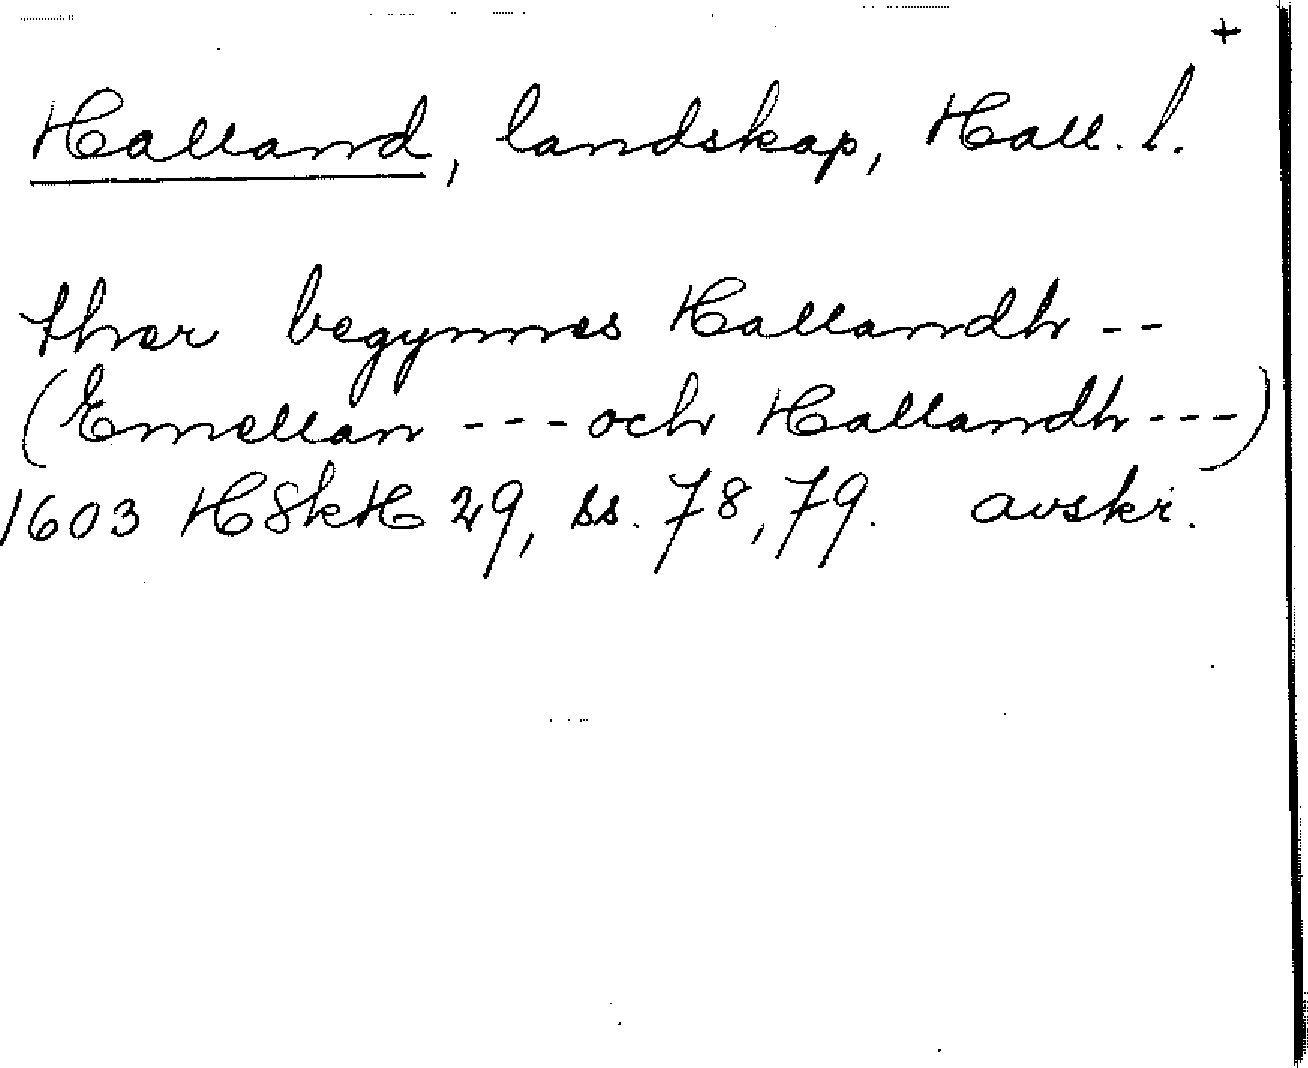 +
Halland, landskap, Hall. l.
thær begynnes Hallandh --
(Emellan --- och Hallandh ---)
1603 HSkH 29, ss. 78, 79. avskr.